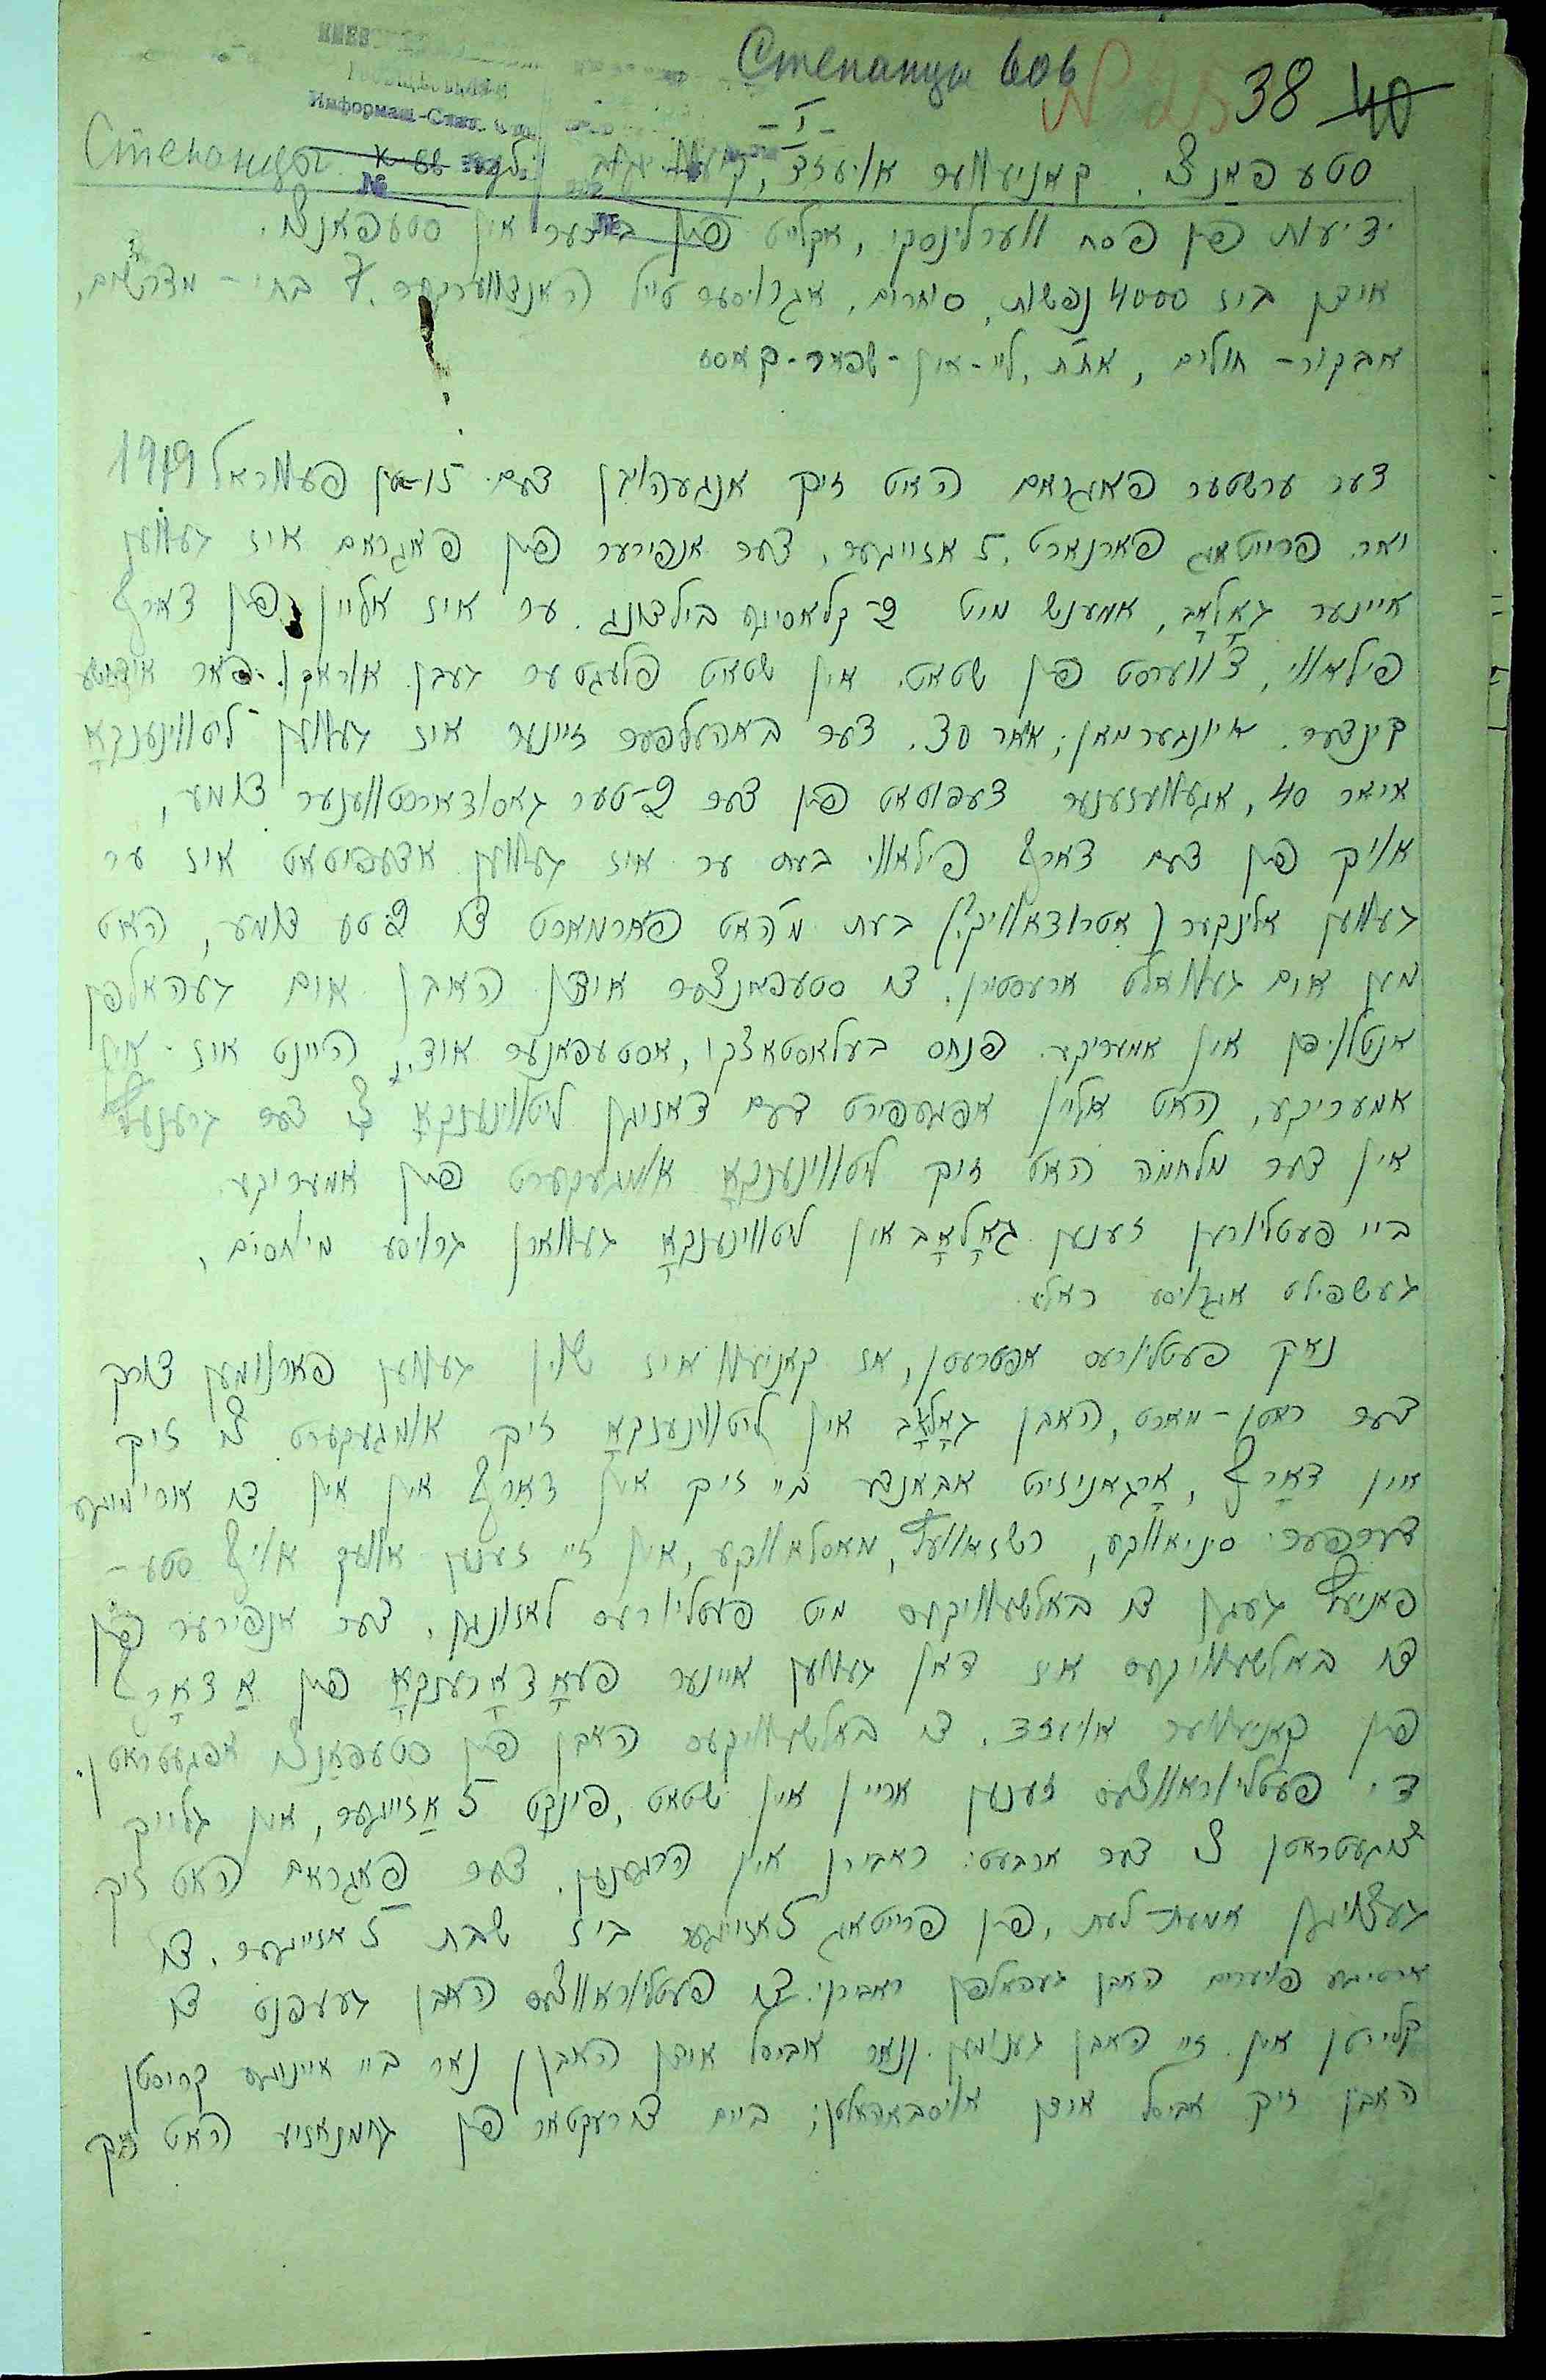 Степанцы 606
38 40
Информац.-Стат.
-I-
Степанцы
סטעפאנצי. קאניעווער אויעזד,
ידיעות פון פסח ווערלינסקי, אקלייט פון אין סטעפאנצי.
אידן ביז 4000 נפשות, סוחרים, אגרויסער טייל האנדווערקער. 7 בתי-מדרשים,
אבקור-חולים, אתת, ליי-און-שפאר-קאסע
דער ערשטער פאגראם האט זיך אנגעהויבן דעם 15-טן פעווראל 1919
יאר. פרייטאג פארנאכט, 5 אזייגער, דער אנפירער פון פאגראם איז געווען
איינער גאָלאָב, אמענש מיט 2-קלאסיגע בילדונג. ער איז אליין פון דארף
פילאווי, ווערסט פון שטאט. אין שטאט פלעגט ער געבן פאר אידישע
קינדער. איונגערמאן, יאר 30. דער באהעלפער זיינער איז געווען ליטווינענקאָ
איאר 40, אגעוועזענער דעפוטאט פון דער 2-טער גאסודארסטווענער דומע,
אויך פון דעם דארף פילאווי. בעת ער איז געווען אדעפוטאט איז ער
געווען אלינקער (אטרודאוויק?) בעת מ'האט פארמאכט די 2טע דומע, האט
מען אים געוואלט ארעסטירן. די סטעפאנצער אידן האבן אים געהאלפן
אנטלויפן אין אמעריקע. פנחס בעלאסטאצקי, אסטעפאנער איד, היינט איז אין
אמעריקע, האט אליין אפגעפירט דעם דאזיגן ליטווינענקאָ צו דער גרענעץ
אין דער מלחמה האט זיך ליטווינענקאָ אומגעקערט פון אמעריקע.
ביי פעטליורען זענען גאָלאָב און ליטווינענקאָ געווארן גרויסע מיוחסים,
געשפילט אגרויסע ראליע.
נאך פעטליורעס אפטרעטן, אז קאניעוו איז שוין געווען פארנומען דורך
דער ראטן-מאכט, האבן גאָלאָב און ליטווינענקאָ זיך אומגעקערט צו זיך
אין דאָרף, אָרגאניזירט אבאנדע ביי זיך אין דאָרף און אין די ארומיגע
דערפער סיניאווקע, רשזאוועץ, מאסלאווקע, און זיי זענען אוועק אויף סטע-
פאניעץ געגן די באלשעוויקעס מיט פעטליורעס לאזונגן. דער אנפירער פון
די באלשעוויקעס איז דאן געווען איינער פעאָדאָרענקאָ פון אַ דאָרף
פון קאניעווער אויעזד. די באלשעוויקעס האבן פון סטעפאַנצי אפגעטראטן.
די פעטליוראווצעס זענען אריין אין שטאט, פינקט 5 אַזייגער, און גלייך
צוגעטראטן צו דער ארבעט: ראבירן און הרגענען. דער פאַגראם האט זיך
געצויגן אמעת-לעת, פון פרייטאג 5 אזייגער ביז שבת 5 אזייגער. די
ארטיגע פויערים האבן געהאלפן ראבירן. די פעטליוראווצעס האבן געעפנט די
קלייטן און זיי האבן גענומען. נאר אביסל אידן האבן נאר ביי אייניגע קריסטן
האבן זיך אביסל אידן אויסבאהאלטן; ביים דירעקטאר פון גימנאזיע האט זיך